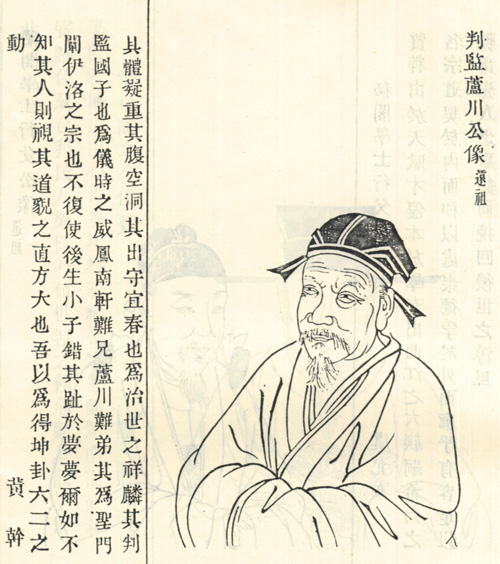 判監蘆川公像 遷祖
其體凝重其腹空洞其出守宜春也爲治世之祥麟其判
監國子也爲儀時之威鳳南軒難兄蘆川難弟其爲聖門
闡伊洛之宗也不復使後生小子錯其趾於夢夢爾如不
知其人則視其道貌之直方大也吾以爲得坤卦六二之
動 黃幹